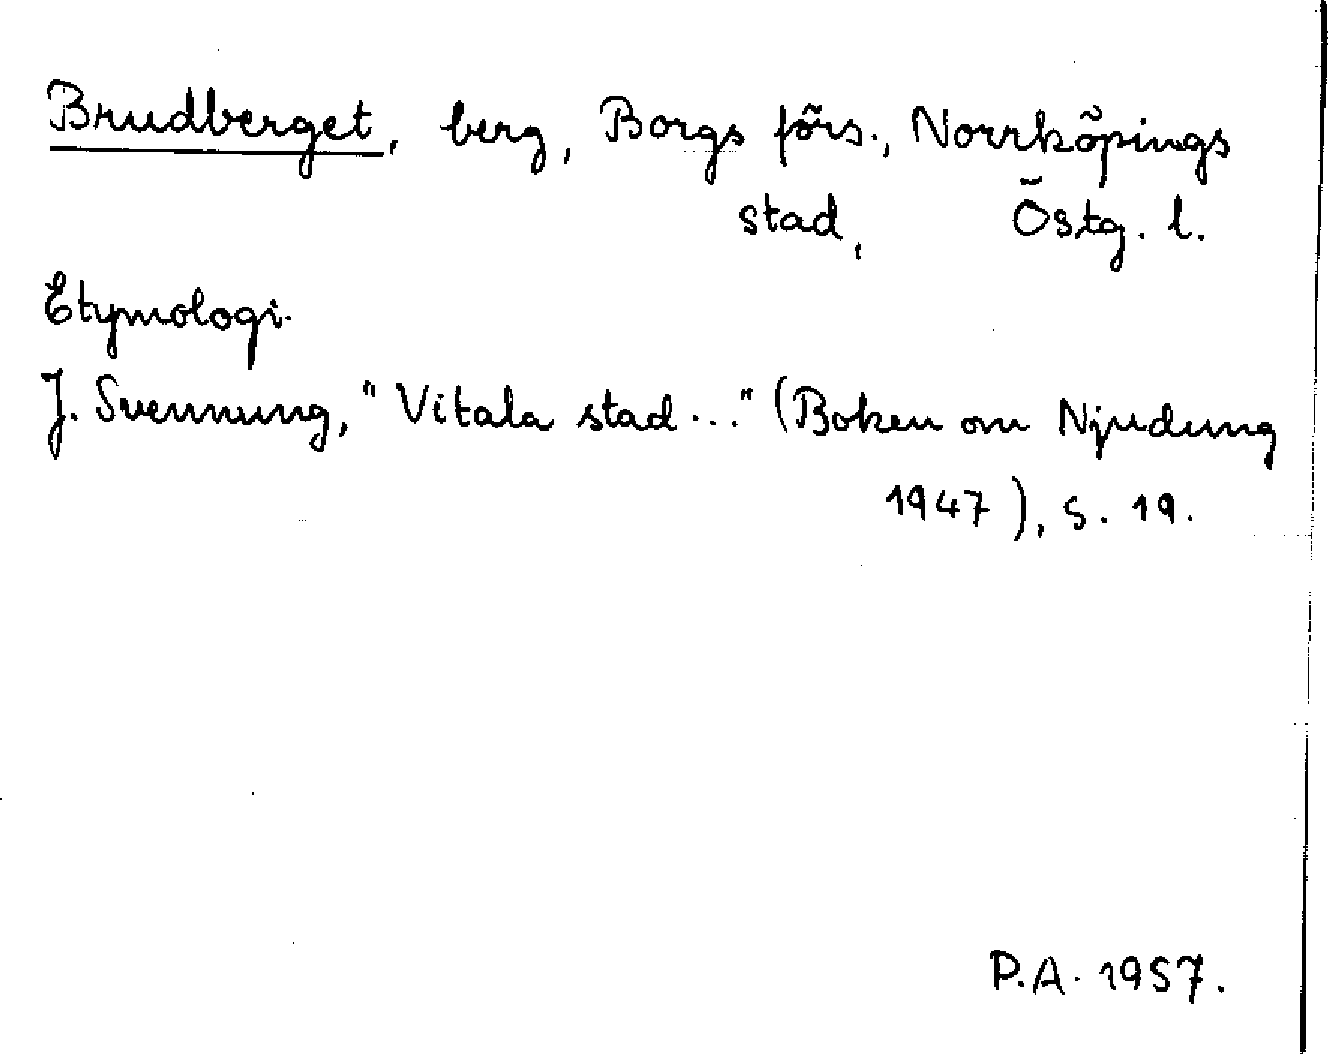 Brudberget, berg, Borgs förs., Norrköpings
stad, Östg. l.
Etymologi.
J. Svennung, "Vitala stad..." (Boken om Njudung
1947), s. 19.
P.A. 1957.